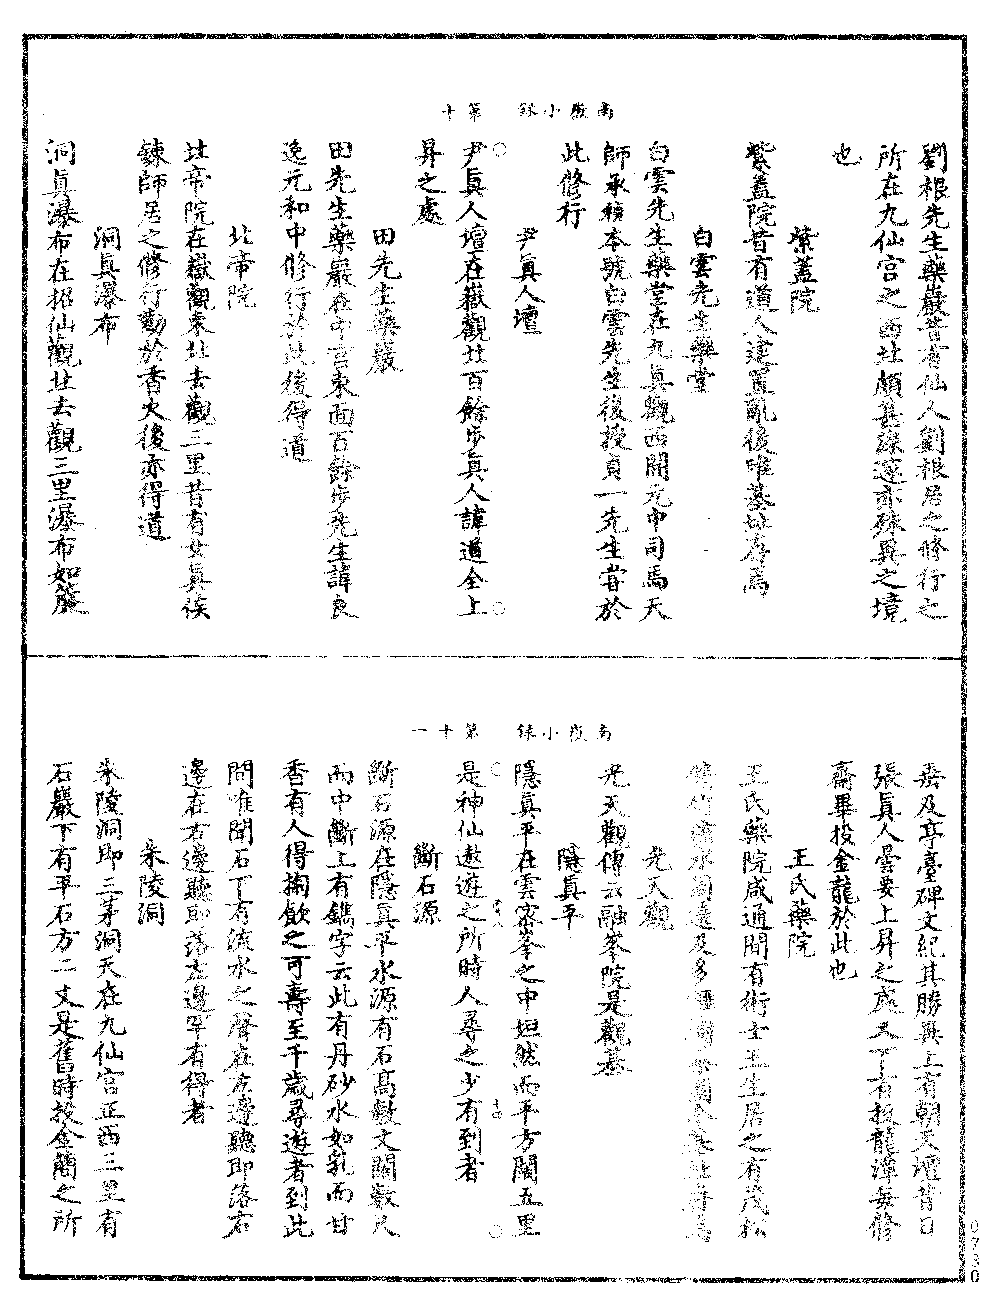 南嶽小録　第十
劉根先生藥巖昔有仙人劉根居之修行之
所在九仙宮之西北頗甚深邃亦殊異之境
也
紫蓋院
紫蓋院昔有道人建置亂後唯基址存焉
白雲先生藥堂
白雲先生藥堂在九真觀西開元中司馬天
師承禎本號白雲先生後授貞一先生嘗於
此修行
尹真人壇
尹真人壇在嶽觀北百餘步真人諱道全上
昇之處
田先生藥巖
田先生藥巖在中宮東面百餘步先生諱良
逸元和中修行於此後得道
北帝院
北帝院在嶽觀東北去觀三里昔有女真侯
鍊師居之修行勤於香火後亦得道
洞真瀑布
洞真瀑布在招仙觀北去觀三里瀑布如簾
南嶽小録　第十一
垂及亭臺碑文紀其勝異上有朝天壇昔日
張真人曇要上昇之處又下有投龍潭每修
齋畢投金龍於此也
王氏藥院
王氏藥院咸通間有術士王生居之有茂松
脩竹流水周遶及多
光天觀
光天觀傳云融峯院是觀基
隱真平
隱真平在雲密峯之中坦然而平方闊五里
是神仙遨遊之所時人尋之少有到者
斷石源
斷石源在隱真平水源有石高數丈闊數尺
而中斷上有鐫字云此有丹砂水如乳而甘
香有人得掬飲之可壽至千歲尋遊者到此
間唯聞石下有流水之聲在左邊聽即落右
邊在右邊聽即落左邊罕有得者
朱陵洞
朱陵洞即三第洞天在九仙宮正西三里有
石巖下有平石方二丈是舊時投金簡之所
0730